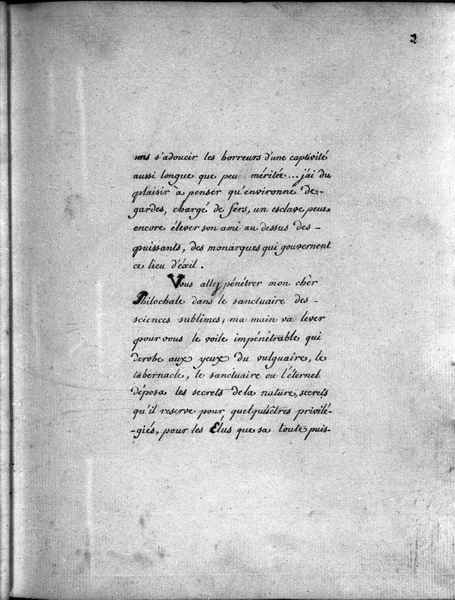 2
mis s'adoucir les horreurs d'une captivité
aussi longue que peu méritée... j'ai du
plaisir à penser qu'environné de-
gardes, chargé de fers, un esclave peut
encore élever son ami au dessus des-
puissants, des monarques qui gouvernent
ce lieu d'éxil.
Vous allez pénétrer mon chèr
Philochale dans le sanctuaire des-
sciences sublimes; ma main va lever
pour vous le voile impénétrable qui
derobe aux yeux du vulguaire, le
tabernacle, le sanctuaire ou l'éternel
déposa les secrets de la nature, secrets
qu'il reserve pour quelqu'êtres privilé-
-giés, pour les Élus que sa toute puis-